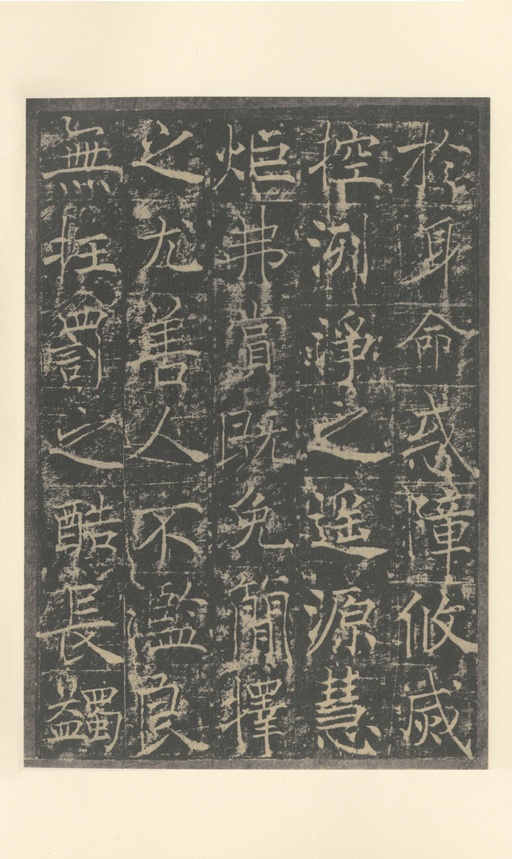 扵身命惑障攸滅
控洌淨之遥源慧
炬弗賞既免簡擇
之尤善人不濫良
無抂罰之酷長蠲